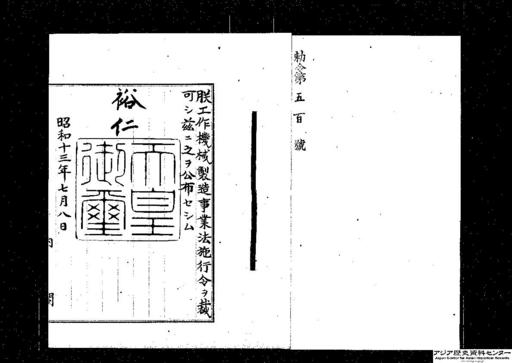 勅令第五百號
朕工作機械製造事業法施行令ヲ裁
可シ茲ニ之ヲ公布セシム
裕仁
天皇
御璽
昭和十三年七月八日
内閣
アジア歴史資料センター
Japan Center for Asian Historical Records